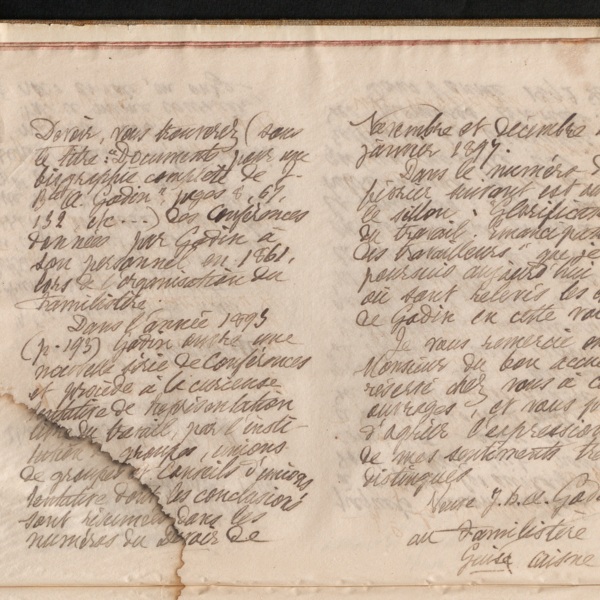 Devoir, vous trouverez (sous
le titre: "Documents pour une
biographie complète de J.
Bte A. Godin" pages 8, 69,
132, etc...) des Conférences
données par Godin à
son personnel en 1861,
lors de l'organisation du
Familistère.
Dans l'année 1893
(p. 193) Godin ouvre une
nouvelle série de Conférences
et procède à la curieuse
tentative de représentation
du travail, par l'insti-
tution de groupes, unions
de groupes et Conseils d'unions
tentative dont les conclusions
sont résumées dans les
numéros du Devoir de
Novembre et décembre
janvier 1897.
Dans le numéro de
février surtout est
le sillon: "Glorification
du travail. Emancipation
des travailleurs" que je
poursuis aujourd'hui
où sont relevés les
de Godin en cette
Je vous remercie
Monsieur du bon accueil
réservé chez vous à
ouvrages, et vous
d'agréer l'expression
de mes sentiments
distingués
Veuve J. B. A. Godin
au Familistère
Guise Aisne